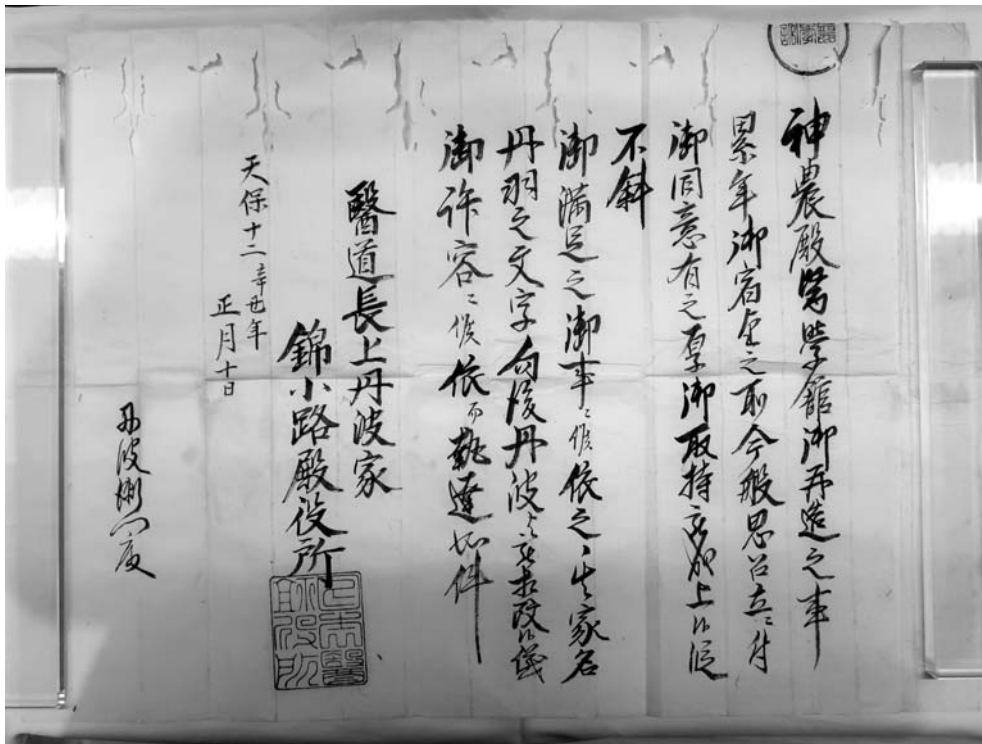 神農殿醫學館御再造之事
累年御宿念之所今般思召立ニ付
御同意有之厚御取持被成上候段
不斜
御満足之御事ニ候依之家名
丹羽之文字向後丹波与被相改候儀
御許容ニ候依而執達如件
醫道長上丹波家
錦小路殿役所
天保十二辛丑年
正月十日
丹波